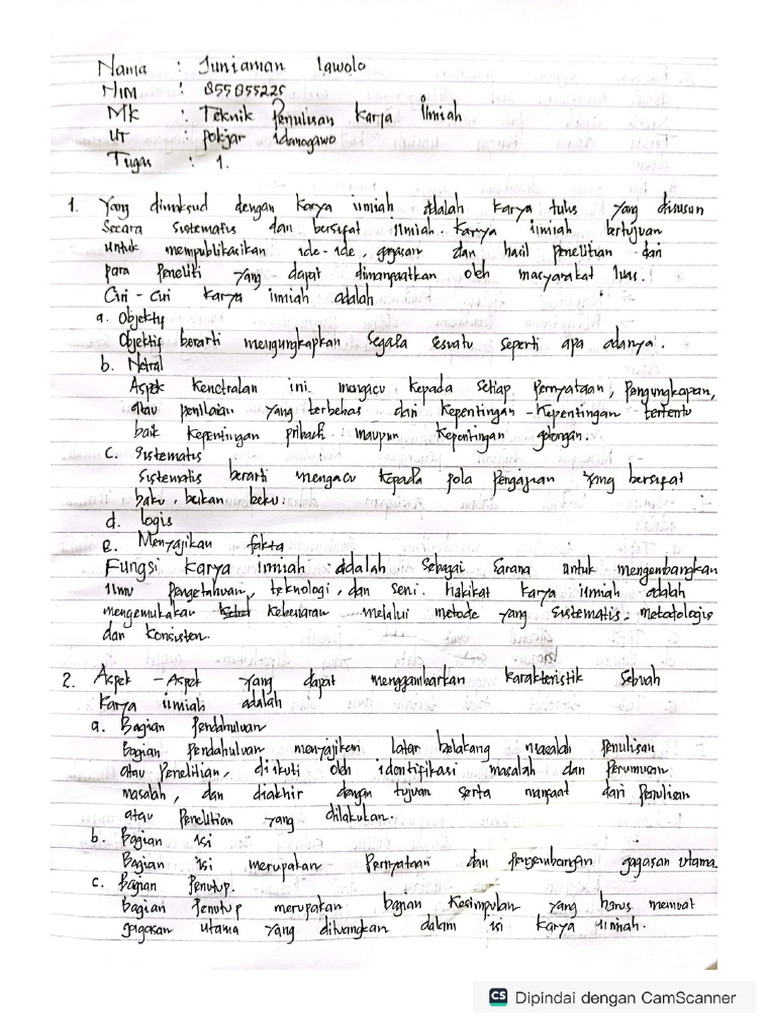 Nama : Juniaman Lawolo
NIM : 855855225
MK : Teknik Penulisan Karya Ilmiah
UT : pokjar idanogawo
Tugas : 1.
1. Yang dimaksud dengan karya ilmiah adalah karya tulis yang disusun
Secara sistematis dan bersifat ilmiah. Karya ilmiah bertujuan
untuk mempublikasikan ide-ide, gagasan dan hasil penelitian dari
para Peneliti yang dapat dimanfaatkan oleh masyarakat luas.
Ciri - ciri karya ilmiah adalah
a. Objektif
Objektif berarti mengungkapkan segala sesuatu seperti apa adanya.
b. Netral
Aspek kenetralan ini mengacu kepada setiap pernyataan, pengungkapan,
atau penilaian yang terbebas dari kepentingan-kepentingan tertentu
baik kepentingan pribadi maupun kepentingan golongan.
c. Sistematis
Sistematis berarti mengacu kepada pola pengajian yang bersifat
baku, bukan beku.
d. logis
e. Menyajikan fakta
Fungsi karya ilmiah adalah sebagai sarana untuk mengembangkan
ilmu pengetahuan, teknologi, dan seni. hakikat karya ilmiah adalah
mengemukakan kebenaran melalui metode yang sistematis, metodologis
dan konsisten.
2. Aspek - Aspek yang dapat menggambarkan karakteristik sebuah
karya ilmiah adalah
a. Bagian Pendahuluan
Bagian Pendahuluan menyajikan latar belakang masalah penulisan
atau Penelitian, diikuti oleh identifikasi masalah dan perumusan
masalah, dan diakhir dengan tujuan serta manfaat dari penulisan
atau Penelitian yang dilakukan.
b. Bagian isi
Bagian isi merupakan Pernyataan dan pengembangan gagasan utama.
c. Bagian Penutup.
Bagian Penutup merupakan bagian kesimpulan yang harus memuat
gagasan utama yang dituangkan dalam isi karya ilmiah.
CS Dipindai dengan CamScanner